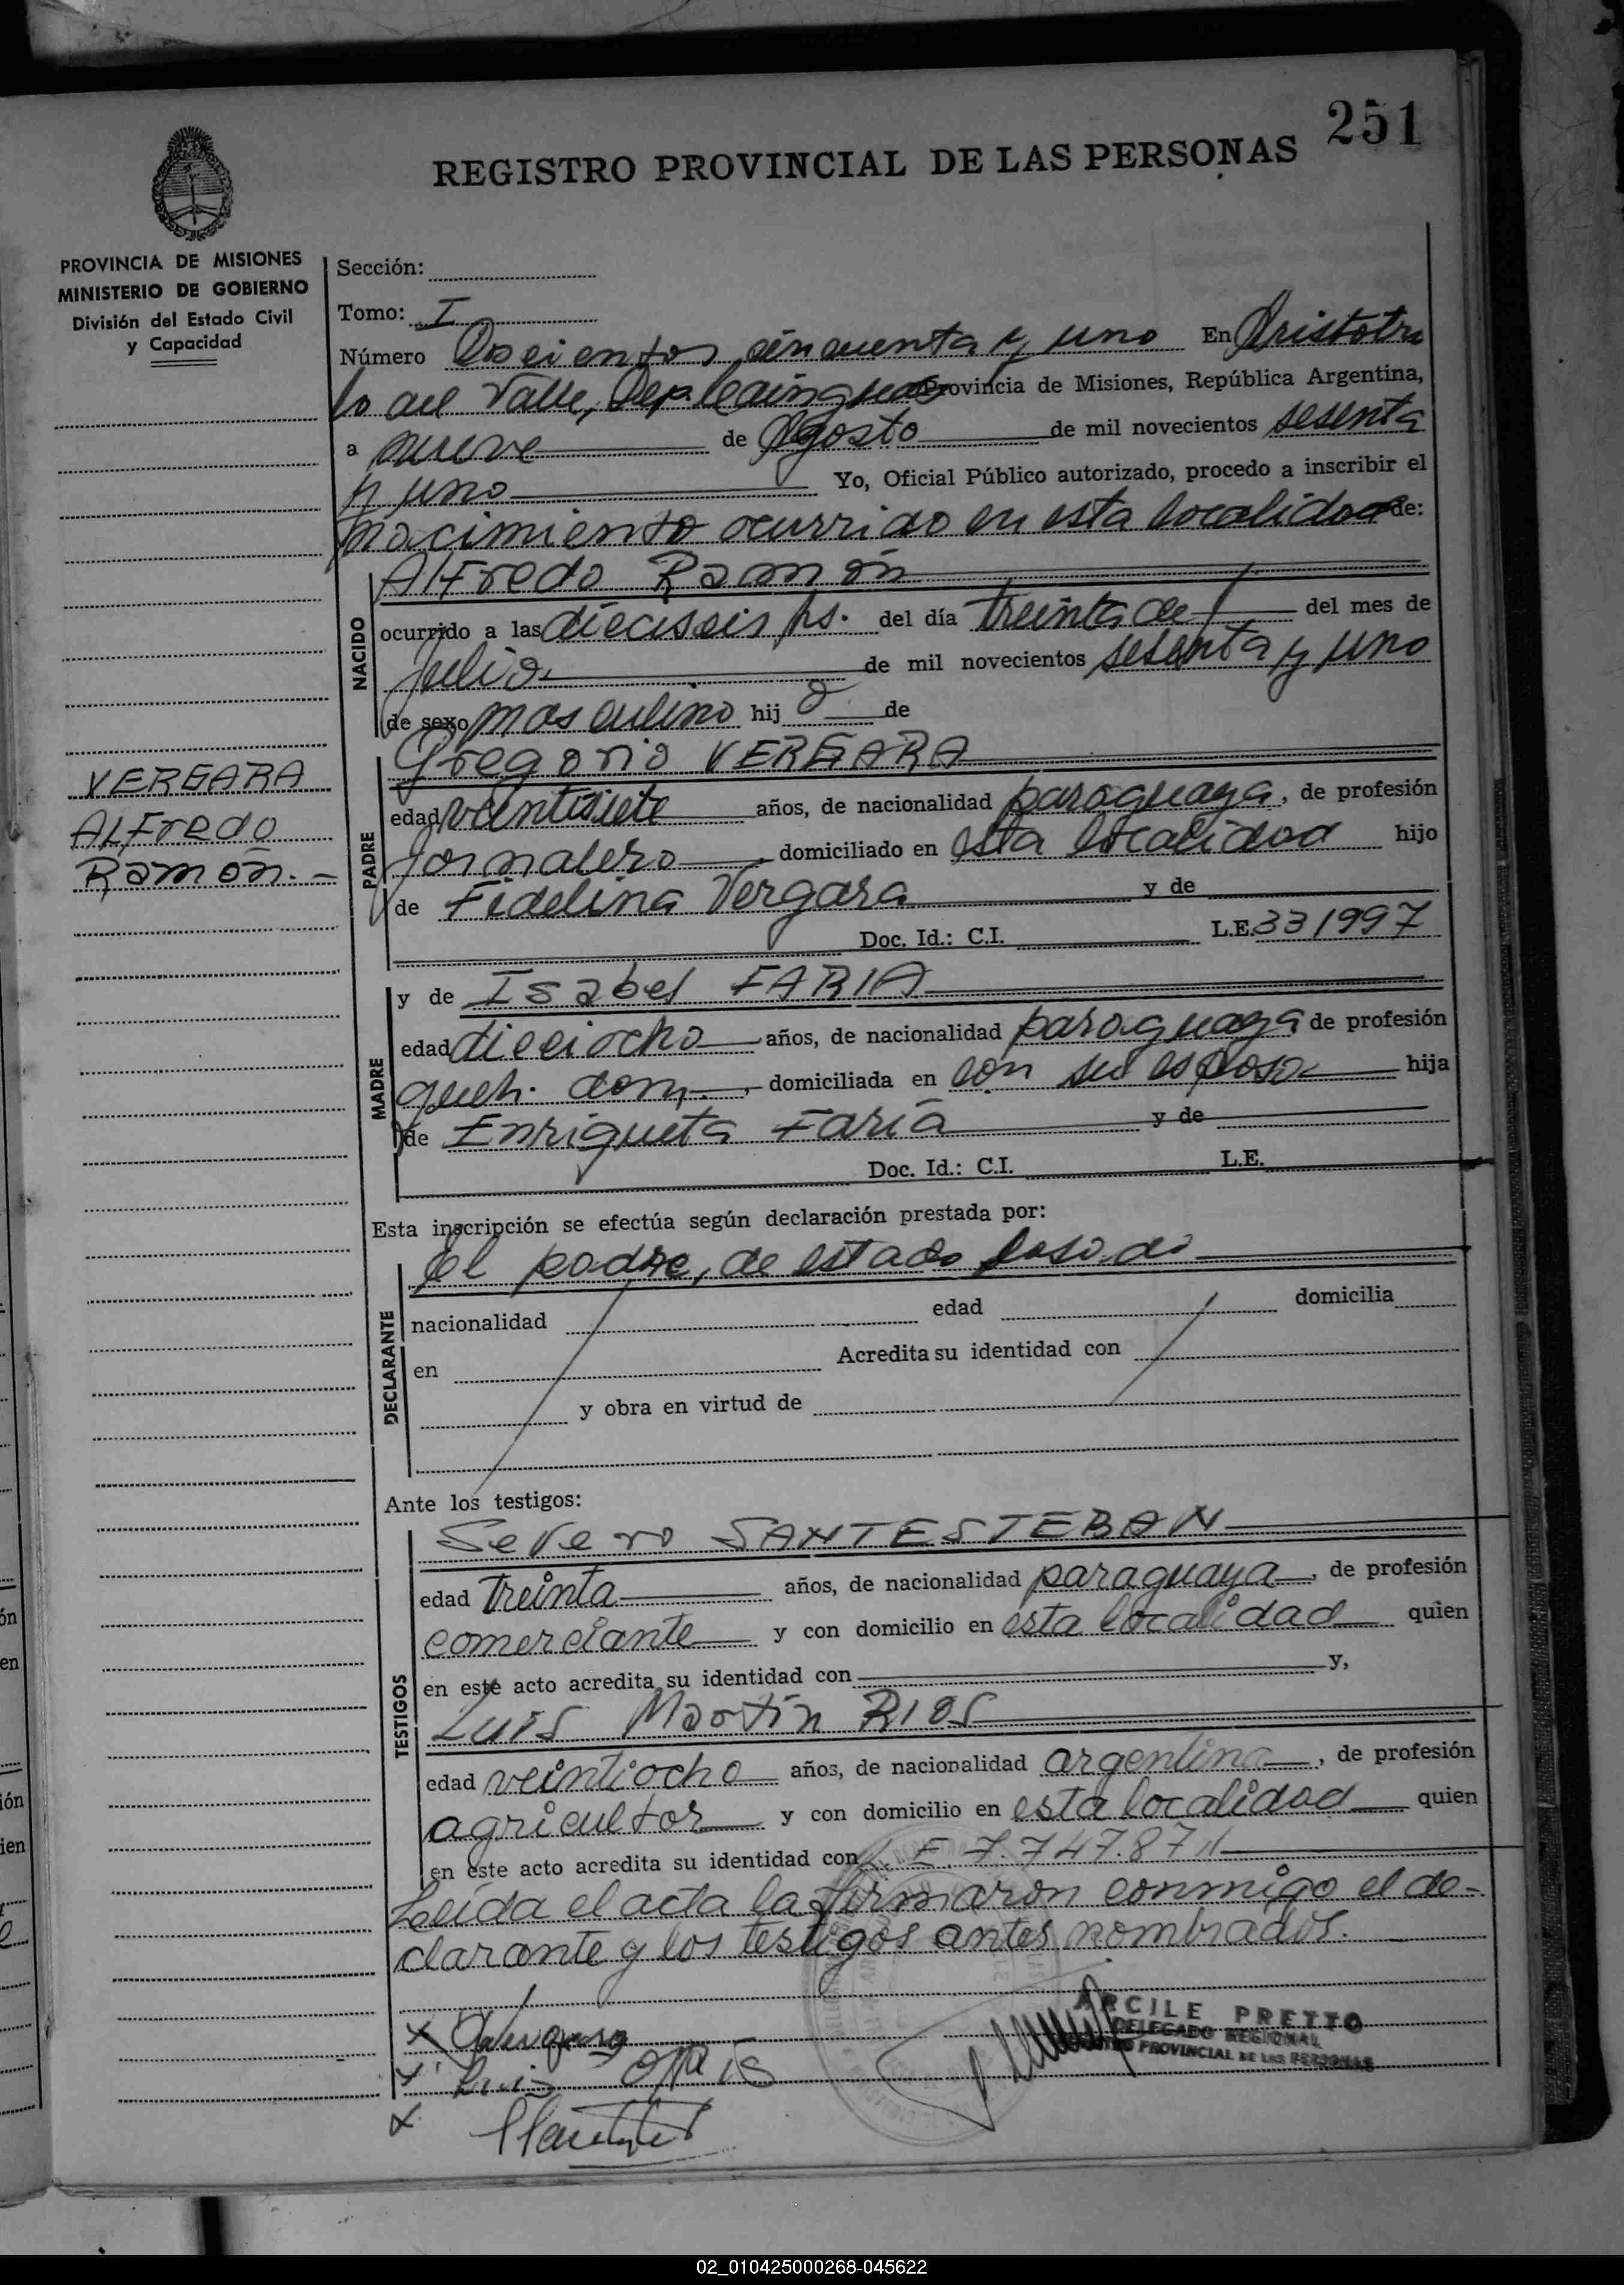 251
REGISTRO PROVINCIAL DE LAS PERSONAS
PROVINCIA DE MISIONES
MINISTERIO DE GOBIERNO
División del Estado Civil
y Capacidad
VERGARA
ALFredo
Ramón.-
Sección:
Tomo: I
Número Doscientos cincuenta y uno En Aristóbu
lo del Valle, Dep. Cainguas Provincia de Misiones, República Argentina,
a nueve de Agosto de mil novecientos sesenta
y uno Yo, Oficial Público autorizado, procedo a inscribir el
nacimiento ocurrido en esta localidad de:
NACIDO
Alfredo Ramón
ocurrido a las dieciseis hs. del día treinta de del mes de
Julio de mil novecientos sesenta y uno
de sexo masculino hij o de
PADRE
Gregorio VERGARA
edad veintisiete años, de nacionalidad paraguaya, de profesión
jornalero domiciliado en esta localidad hijo
de Fidelina Vergara y de
Doc. Id.: C.I. L.E. 331997
MADRE
y de Isabel FARIA
edad dieciocho años, de nacionalidad paraguaya de profesión
queh. dom., domiciliada en con su esposo hija
de Enriqueta Faría y de
Doc. Id.: C.I. L.E.
Esta inscripción se efectúa según declaración prestada por:
DECLARANTE
el padre, de estado casado
nacionalidad edad domicilia
en Acredita su identidad con
y obra en virtud de
Ante los testigos:
TESTIGOS
Severo SANTESTEBAN
edad treinta años, de nacionalidad paraguaya, de profesión
comerciante y con domicilio en esta localidad quien
en este acto acredita su identidad con y,
Luis Martín RIOS
edad veintiocho años, de nacionalidad argentina, de profesión
agricultor y con domicilio en esta localidad quien
en este acto acredita su identidad con L.E. 7.747.871
Leída el acta la firmaron conmigo el de-
clarante y los testigos antes nombrados.
ARCILE PRETTO
DELEGADO REGIONAL
PROVINCIAL DE LAS PERSONAS
Luis
02_010425000268-045622